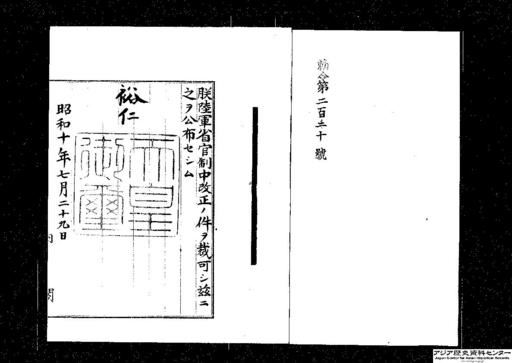 勅令第二百五十號
朕陸軍省官制中改正ノ件ヲ裁可シ茲ニ
之ヲ公布セシム
裕仁
天皇御璽
昭和十年七月二十九日
内閣
アジア歴史資料センター
Japan Center for Asian Historical Records